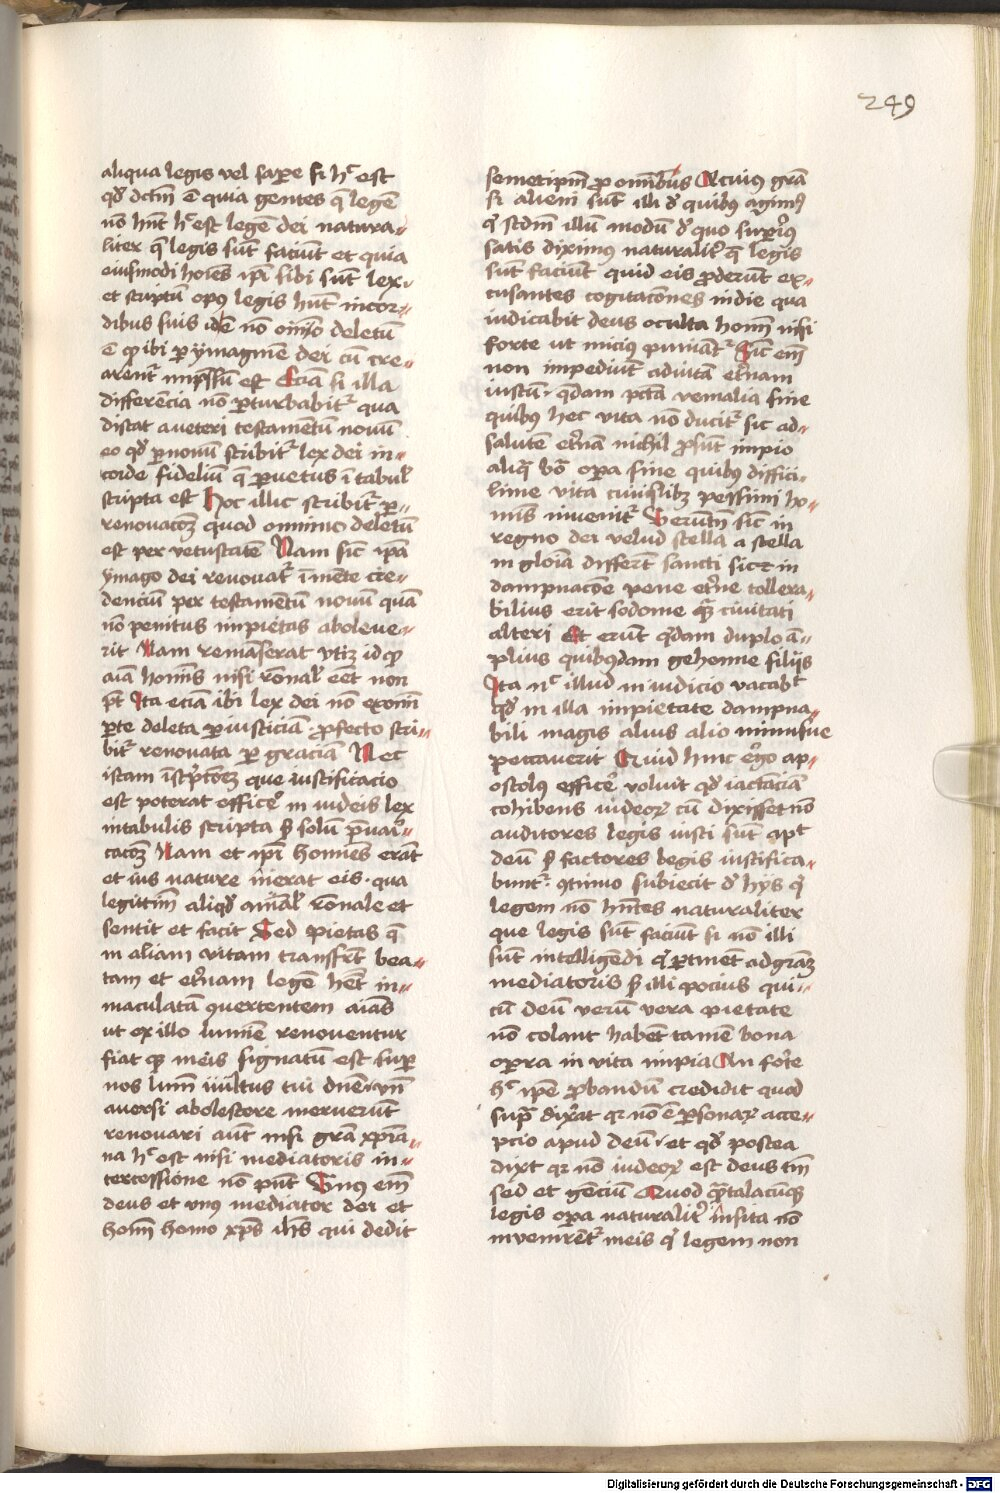 249
aliqua legis vel sapere si hͨ est
qđ dc̄m ē quia gentes q̄ legē
nō hn̄t hͨ est legē dei natura〃
liter q̄ legis sūt faciūt et quia
eiusmodi hoīes ip̄i sibi sūt lex
et scriptū opꝰ legis hn̄t incor〃
dibus suis idē nō oīno deletū
ē qđ ibi ꝑ ymaginē dei cū cre〃
arent᷑ imp̄ssū est Eciā si illa
differēcia nō ꝑturbabit᷑ qua
distat aveteri testamētū novū
eo qđ ꝑ novū scribit᷑ lex dei in〃
corde fideliū q̄ ꝑ vetus ī tabul̄
scripta est Hoc illic scribit᷑ ꝑ〃
renovacōꝫ quod omnino deletū
est per vetustatē Nam sic̄ ip̄a
ymago dei renovat᷑ ī mēte cre〃
dencium per testamentū novū quā
nō penitus impietas aboleve〃
rit Nam remāserat vtiqꝫ id qđ
aīa hoīnis nisi rōnal̄ eēt non
pt̄ Ita eciā ibi lex dei nō ex om̄i
ꝑte deleta ꝑ iusticiā ꝓfecto scri〃
bit᷑ renovata ꝑ graciā Nec
istam īsc̄ptōꝫ que iustificacio
est poterat efficē in iudeis lex
intabulis scripta sꝫ solū p̄vari〃
cacōꝫ Nam et ip̄i homines erāt
et ius nature īnerat eis · qua
legitīm aliqđ aīal̄ rōnale et
sentit et facit Sed pietas q̄
in aliam vitam transfert bea〃
tam et et̄nam legē hēt in〃
maculatā ꝯvertentem aīas
ut ex illo lumīe renoventur
fiat qꝫ in eis signatū est suꝑ
nos lumē vultus tui dn̄e vn̄
aversi abolescere meruerūt
renovari aūt nisi grā xp̄ia〃
na hͨ est nisi mediatoris in〃
tercessione nō pn̄t Vnꝰ em̄
deus et vnꝰ mediator dei et
hom̄ homo xp̄s ih̄s qui dedit
semetip̄m ꝓ omībus Acuiꝰ grā
si alieni sūt illi đ quibꝰ agimꝰ
qͥ scdm̄ illū modū đ quo supͥꝰ
satis diximus naturalit᷑ q̄ legis
sūt faciūt quid eis ꝓderūt ex〃
cusantes cogitacōnes in die qua
iudicabit deus oculta hom̄ nisi
forte ut miciꝰ puniāt᷑ Sic̄ em̄
non impediūt aduitā et̄nam
iustū · qͣdam pc̄ta venialia sine
quibus hec vita nō ducit᷑ sic ad〃
salutē et̄nā nichil ꝓsūt impio
aliq̄ b̄o oꝑa sine quibus diffici〃
lime vita cuiuslibꝫ pessimi ho〃
mīs invenit᷑ Verūtn̄ sic̄ in
regno dei velud stella a stella
in glōia differt̄ sancti sic ⁊ in
dampnacōne pene et̄ne tollera〃
bilius erit sodome qͣꝫ civitati
alteri Et erūt qͥdam duplo ā〃
plius quibusdam gehenne filijs
Ita nͨ illud in iudicio vacabͭ
qđ in illa impietate dampna〃
bili magis alius alio minusue
peccaverit Quid hinc ergo ap〃
ostolus efficē voluit qđ iactāciā
cohibens iudeoꝝ cū dixisset nō
auditores legis iusti sūt aput
deū sꝫ factores legis iustifica〃
bunt᷑ · ꝯtinuo subiecit đ hijs qͥ
legem nō hn̄tes naturaliter
que legis sūt faciūt si nō illi
sūt intelligendi qͥ ꝑtinēt ad grāꝫ
mediatoris sꝫ illi pocius qui〃
cū deū verū vera pietate
nō colant habēt tamē bona
oꝑra in vita impia An forte
hͨ ip̄e ꝓbandū credidit quod
sup̄ dixerat qꝛ nō ē ꝑsonaꝝ acce〃
pcio apud deū · et qđ postea
dixt̄ qꝛ nō iudeoꝝ est deus tm̄
sed et gēciū Quod
legis oꝑa naturalit᷑ īnsita nō
invenirēt᷑ in eis qͥ legem non
Digitalisierung gefördert durch die Deutsche Forschungsgemeinschaft - DFG